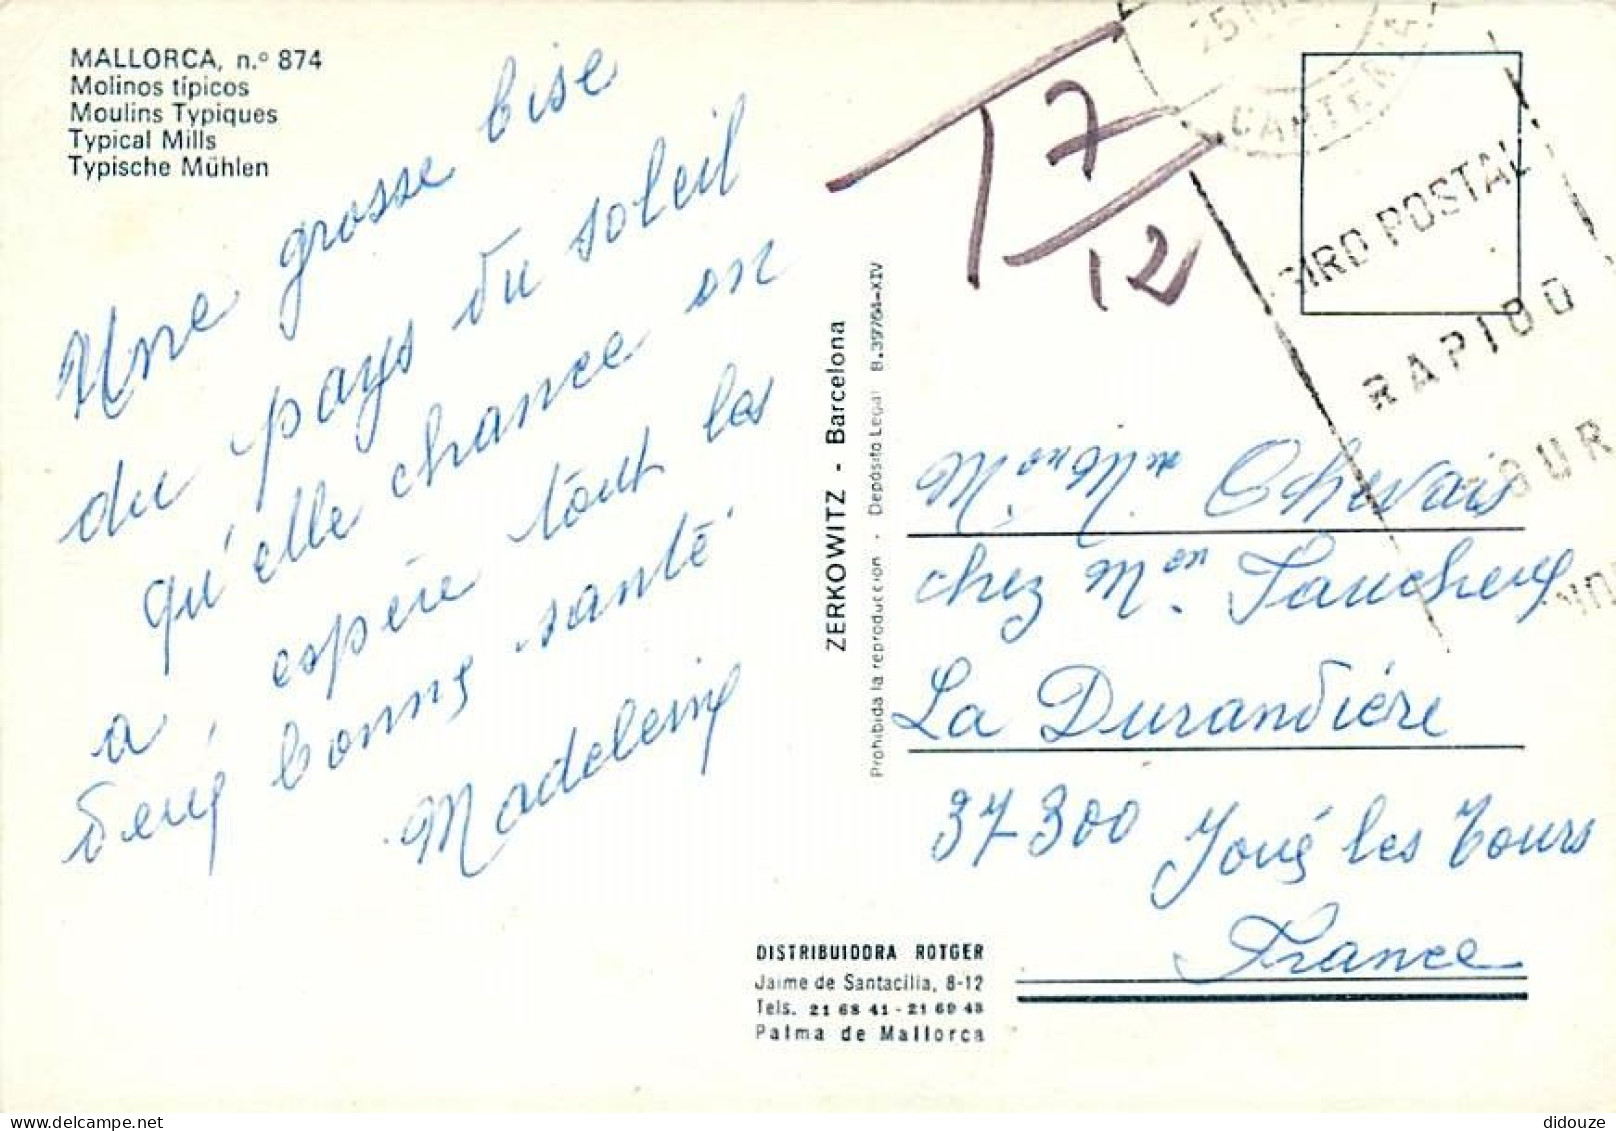 MALLORCA, n.º 874
Molinos típicos
Moulins Typiques
Typical Mills
Typische Mühlen
Une grosse bise
du pays du soleil
qu'elle chance on
a, espère tout les
deux bonne santé
Madeleine
ZERKOWITZ - Barcelona
Prohibida la reproducción - Depósito Legal B.39764-XIV
T 7
12
25
CARTERIA
GIRO POSTAL
RAPIDO
SUR
Chevais
chez Faucheux
La Durandière
37300 Joué les Tours
France
DISTRIBUIDORA ROTGER
Jaime de Santacilia, 8-12
Tels. 21 68 41 - 21 69 48
Palma de Mallorca
didouze